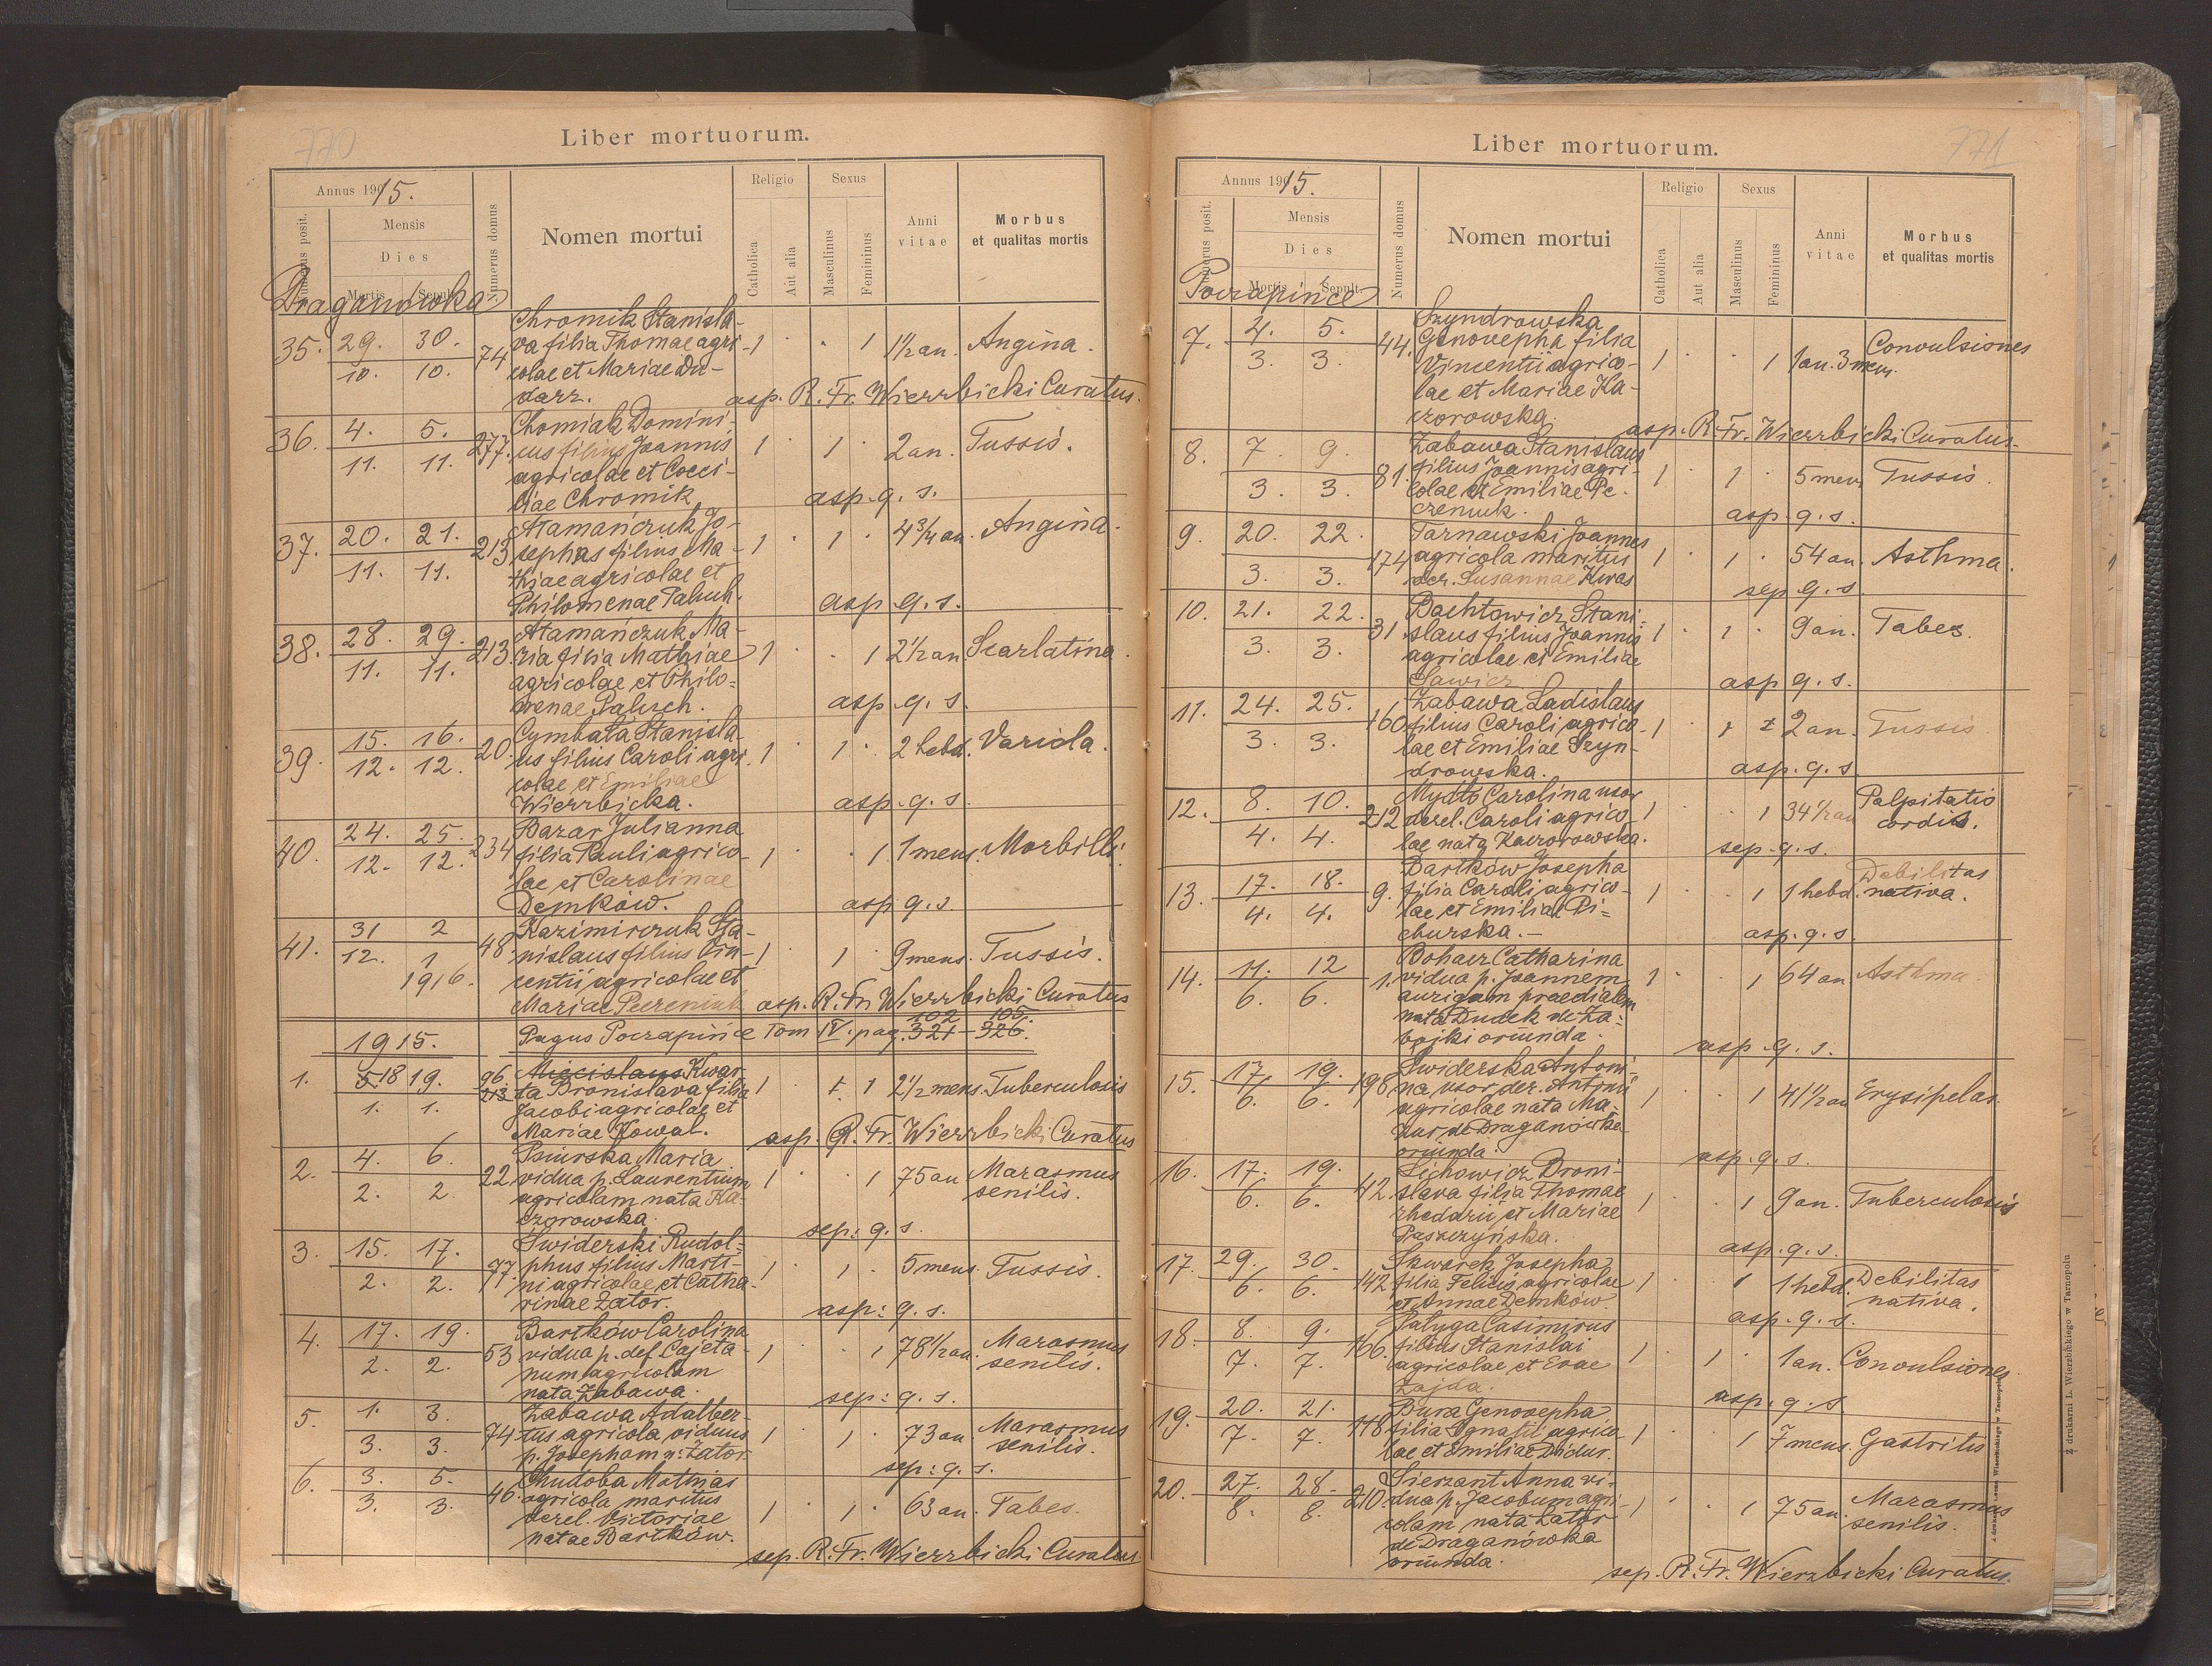 770
Liber mortuorum.
Annus 1915.
Numerus posit.
Mensis
Dies
Mortis
Sepult.
Numerus domus
Nomen mortui
Religio
Catholica
Aut alia
Sexus
Masculinus
Femininus
Anni vitae
Morbus
et qualitas mortis
Draganówka
35. 29. 30. 10. 10. 74
Chromik Stanisla-
va filia Thomae agri-
colae et Mariae Du-
darz.
1 1 1½ an. Angina.
asp. R. Fr. Wierzbicki Curatus.
36. 4. 5. 11. 11. 277.
Chomiak Domini-
cus filius Joannis
agricolae et Coeci-
liae Chromik
1 1 2 an. Tussis.
asp. q. s.
37. 20. 21. 11. 11. 213
Atamańczuk Jo-
sephus filius Ma-
thiae agricolae et
Philomenae Paluch.
1 1 4¾ an. Angina.
asp. q. s.
38. 28. 29. 11. 11. 213.
Atamańczuk Ma-
ria filia Mathiae
agricolae et Philo=
menae Paluch.
1 1 2½ an. Scarlatina.
asp. q. s.
39. 15. 16. 12. 12. 20.
Cymbała Stanisla-
us filius Caroli agri
colae et Emiliae
Wierzbicka.
1 1 2 hebd. Variola.
asp. q. s.
40. 24. 25. 12. 12. 234
Bazar Julianna
filia Pauli agrico-
lae et Carolinae
Demków.
1 1 1 mens. Morbilli.
asp q. s.
41. 31 2 12. 1 1916. 48.
Kazimirczuk Sta-
nislaus filius Vin-
centii agricolae et
Mariae Peczeniuk
1 1 9 mens. Tussis.
asp. R. Fr. Wierzbicki Curatus
1915.
Pagus Poczapińce Tom IV. pag. 321 - 326.
102 105.
1. 5 18 19. 1. 1. 96. 213
Miecislaus Kwar-
ta Bronislava filia
Jacobi agricolae et
Mariae Kowal.
1 1 1 2½ mens. Tuberculosis
asp. R. Fr. Wierzbicki Curatus
2. 4. 6. 2. 2. 22
Psiurska Maria
vidua p. Laurentium
agricolam nata Ka-
czorowska.
1 1 75 an Marasmus
senilis.
sep: q. s.
3. 15. 17. 2. 2. 77.
Świderski Rudol=
phus filius Marti-
ni agricolae et Catha-
rinae Zator.
1 1 5 mens. Tussis.
asp: q. s.
4. 17. 19. 2. 2. 53
Bartków Carolina
vidua p. def. Cajeta-
num agricolam
nata Zabawa.
1 1 78½ an. Marasmus
senilis.
sep: q. s.
5. 1. 3. 3. 3. 74
Zabawa Adalber-
tus agricola viduus
p. Josepham n: Zator.
1 1 73 an. Marasmus
senilis.
sep: q. s.
6. 3. 5. 3. 3. 46.
Chudoba Mathias
agricola maritus
derel. Victoriae
natae Bartków.
1 1 63 an. Tabes.
sep. R. Fr. Wierzbicki Curatus
771
Liber mortuorum.
Annus 1915.
Numerus posit.
Mensis
Dies
Mortis
Sepult.
Numerus domus
Nomen mortui
Religio
Catholica
Aut alia
Sexus
Masculinus
Femininus
Anni vitae
Morbus
et qualitas mortis
Poczapińce
7. 4. 5. 3. 3. 44.
Szyndrowska
Genovepha filia
Vincentii agrico-
lae et Mariae Ka-
czorowska.
1 1 1 an. 3 mens. Convulsiones
asp. R. Fr. Wierzbicki Curatus.
8. 7. 9. 3. 3. 81.
Zabawa Stanislaus
filius Joannis agri-
colae et Emiliae Pe-
czeniuk.
1 1 5 mens. Tussis.
asp. q. s.
9. 20. 22. 3. 3. 174
Tarnawski Joannes
agricola maritus
der. Susannae Kwas
1 1 54 an. Asthma.
sep q. s.
10. 21. 22. 3. 3. 31.
Bachtowicz Stani-
slaus filius Joannis
agricolae et Emiliae
Sawicz
1 1 9 an. Tabes.
asp q. s.
11. 24. 25. 3. 3. 160
Zabawa Ladislaus
filius Caroli agrico-
lae et Emiliae Szyn-
drowska.
1 1 2 an. Tussis
asp. q. s
12. 8. 10. 4. 4. 212
Mydło Carolina uxor
derel. Caroli agrico-
lae nata Kaczorowska.
1 1 34½ an Palpitatio
cordis.
sep. q. s.
13. 17. 18. 4. 4. 9.
Bartków Josepha
filia Caroli agrico-
lae et Emiliae Pi=
churska.-
1 1 1 hebd. Debilitas
nativa.
asp. q. s.
14. 11. 12 6. 6. 1.
Bohacz Catharina
vidua p. Joannem
aurigam praedialem
nata Dudek de Za-
bojki oriunda.
1 1 64 an Asthma.
asp. q. s.
15. 17. 19. 6. 6. 198
Świderska Antoni-
na uxor der. Antonii
agricolae nata Ma-
zur de Draganówka
oriunda.
1 1 41½ an Erysipelas.
asp. q. s.
16. 17. 19. 6. 6. 42.
Lichowicz Broni-
slava filia Thomae
rhedarii et Mariae
Paszczyńska.
1 1 9 an. Tuberculosis
asp. q. s.
17. 29. 30. 6. 6. 142
Skwarek Josepha
filia Felicis agricolae
et Annae Demków.
1 1 1 hebd. Debilitas
nativa.
asp. q. s.
18. 8. 9. 7. 7. 166.
Pałyga Casimirus
filius Stanislai
agricolae et Evae
Zajda.
1 1 1 an. Convulsiones.
asp. q. s
19. 20. 21. 7. 7. 118
Bura Genovepha
filia Ignatii agrico-
lae et Emiliae Didur.
1 1 7 mens. Gastritis
20. 27. 28. 8. 8. 210
Sierzant Anna vi-
dua p. Jacobum agri-
colam nata Zator
de Draganówka
oriunda.
1 1 75 an. Marasmus
senilis.
sep. R. Fr. Wierzbicki Curatus.
Z drukarni L. Wierzbickiego w Tarnopolu